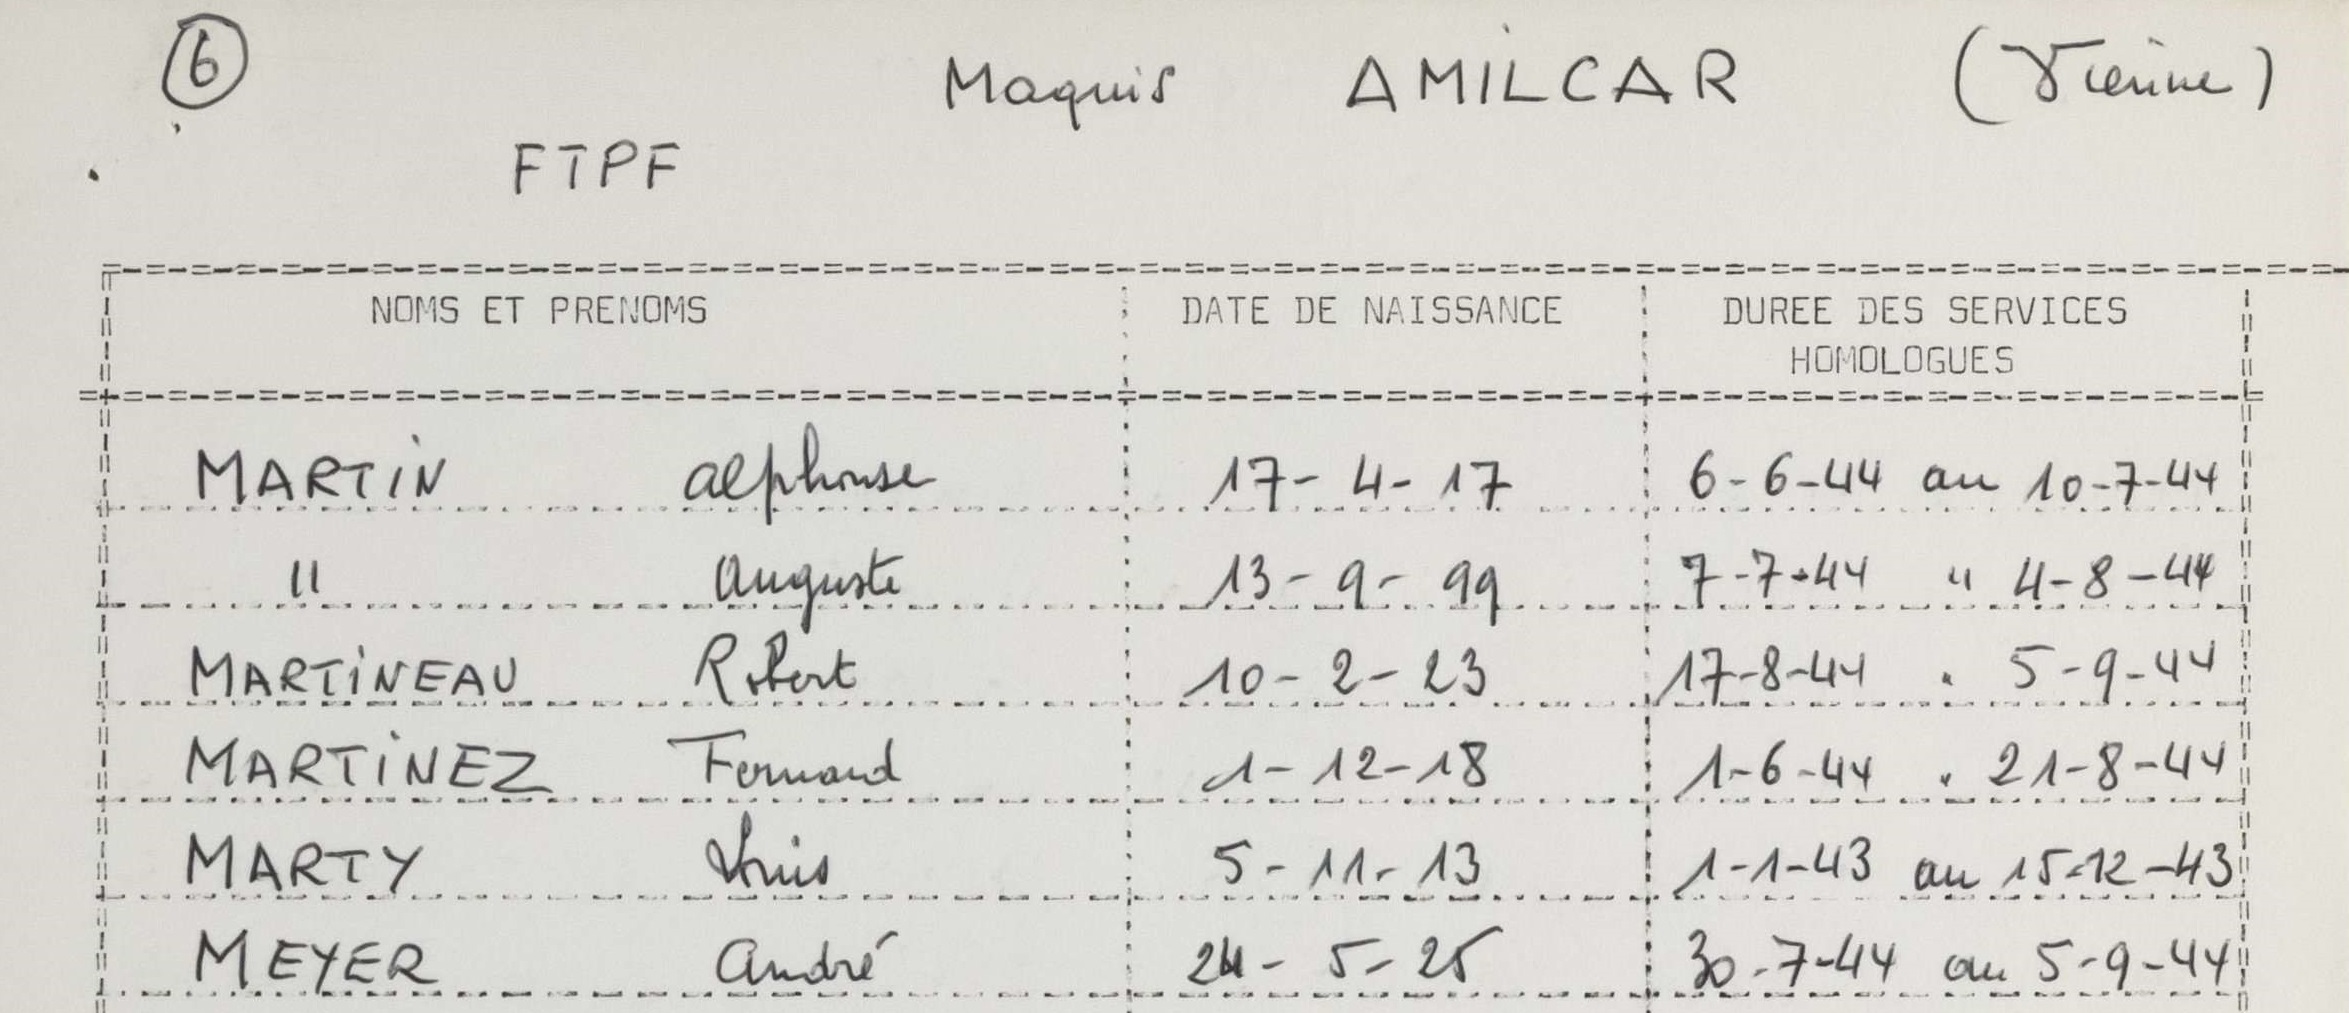 6
Maquis AMILCAR (Vienne)
FTPF
NOMS ET PRENOMS DATE DE NAISSANCE DUREE DES SERVICES
HOMOLOGUES
MARTIN Alphonse 17-4-17 6-6-44 au 10-7-44
" Auguste 13-9-99 7-7-44 " 4-8-44
MARTINEAU Robert 10-2-23 17-8-44 " 5-9-44
MARTINEZ Fernand 1-12-18 1-6-44 " 21-8-44
MARTY Louis 5-11-13 1-1-43 au 15-12-43
MEYER André 24-5-25 30-7-44 au 5-9-44